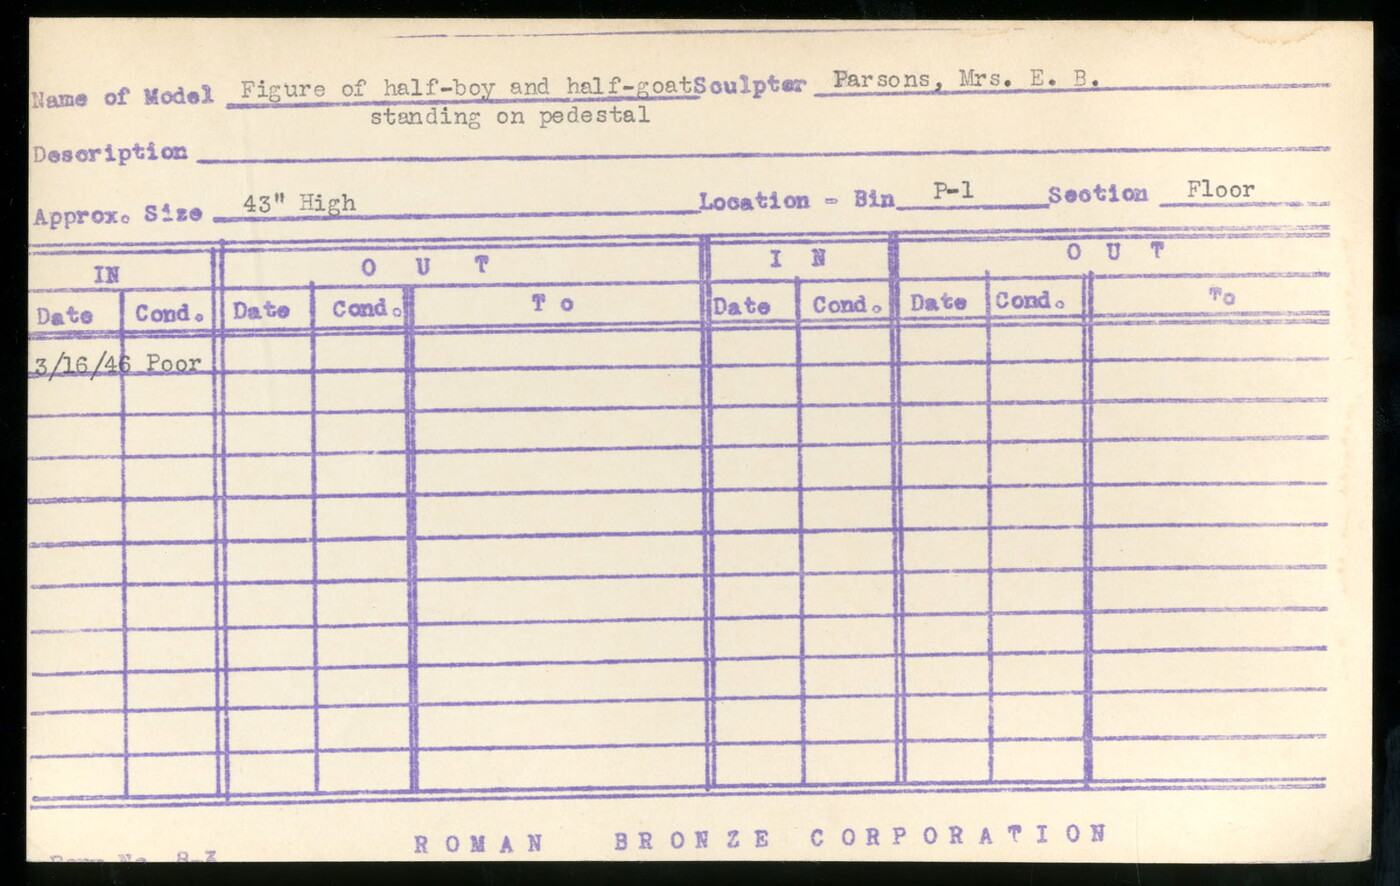 Name of Model Figure of half-boy and half-goat Sculptor Parsons, Mrs. E. B.
standing on pedestal
Description
Approx. Size 43" High Location - Bin P-1 Section Floor
IN OUT IN OUT
Date Cond. Date Cond. To Date Cond. Date Cond. To
3/16/46 Poor
ROMAN BRONZE CORPORATION
Form No. 8-3